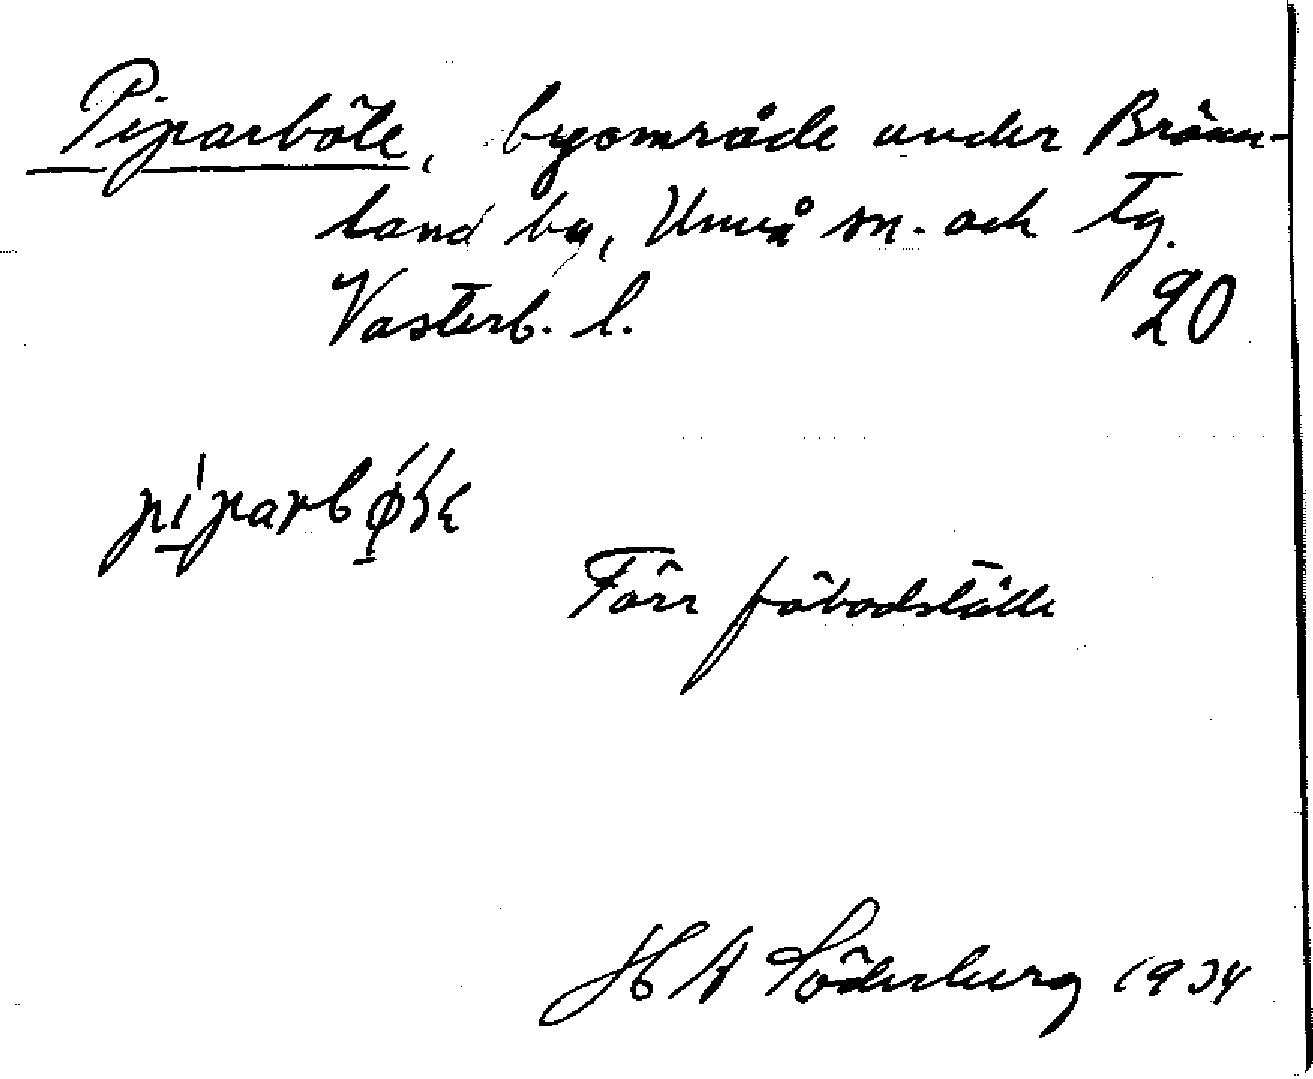 Piparböle, byområde under Bränn-
land by, Umeå sn. och tg.
Västerb. l. 20
Förr fäbodställe
H A Söderberg 1934